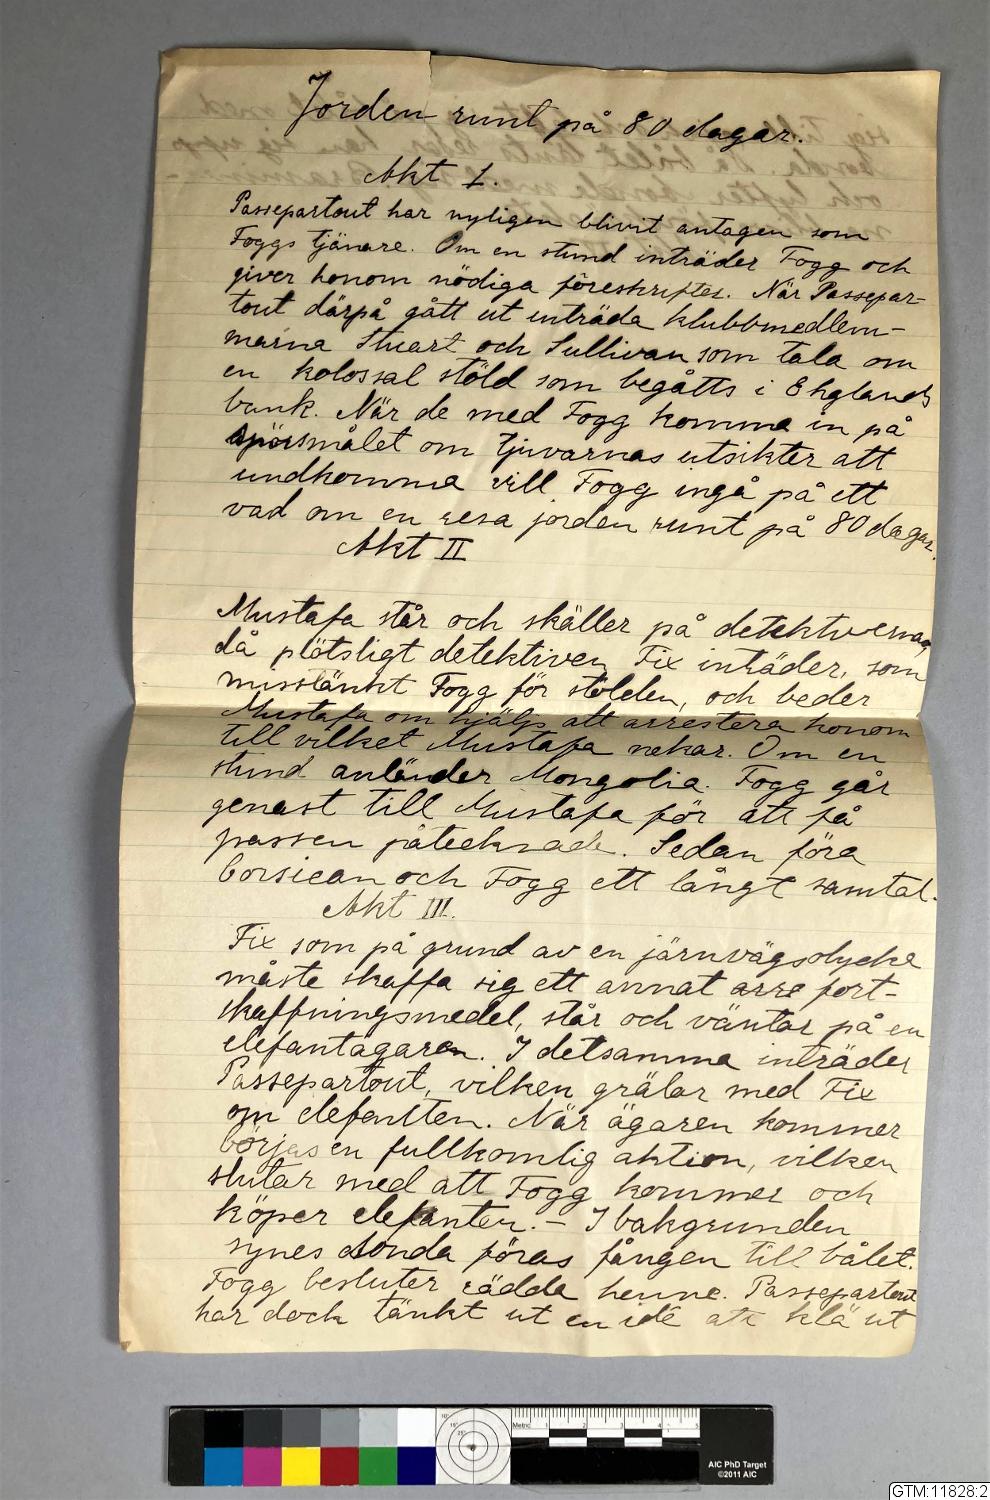 Jorden runt på 80 dagar.
Akt I.
Passepartout har nyligen blivit antagen som
Foggs tjänare. Om en stund inträder Fogg och
giver honom nödiga föreskrifter. När Passepar-
tout därpå gått ut inträda klubbmedlem-
marna Stuart och Sullivan som tala om
en kolossal stöld som begåtts i Englands
bank. När de med Fogg komma in på
spörsmålet om tjuvarnas utsikter att
undkomma vill Fogg ingå på ett
vad om en resa jorden runt på 80 dagar.
Akt II
Mustafa står och skäller på detektiverna,
då plötsligt detektiven Fix inträder, som
misstänkt Fogg för stölden, och beder
Mustafa om hjälp att arrestera honom
till vilket Mustafa nekar. Om en
stund anländer Mongolia. Fogg går
genast till Mustafa för att få
passen påtecknade. Sedan föra
Corsican och Fogg ett långt samtal.
Akt III.
Fix som på grund av en järnvägsolycka
måste skaffa sig ett annat fort-
skaffningsmedel, står och väntar på en
elefantägaren. I detsamma inträder
Passepartout, vilken grälar med Fix
om elefanten. När ägaren kommer
börjas en fullkomlig aktion, vilken
slutar med att Fogg kommer och
köper elefanten. – I bakgrunden
synes föras fången till bålet.
Fogg besluter rädda henne. Passepartout
har dock tänkt ut en idé att klä ut
Metric 1 2 3 4 5
AIC PhD Target
©2011 AIC
GTM:11828:2